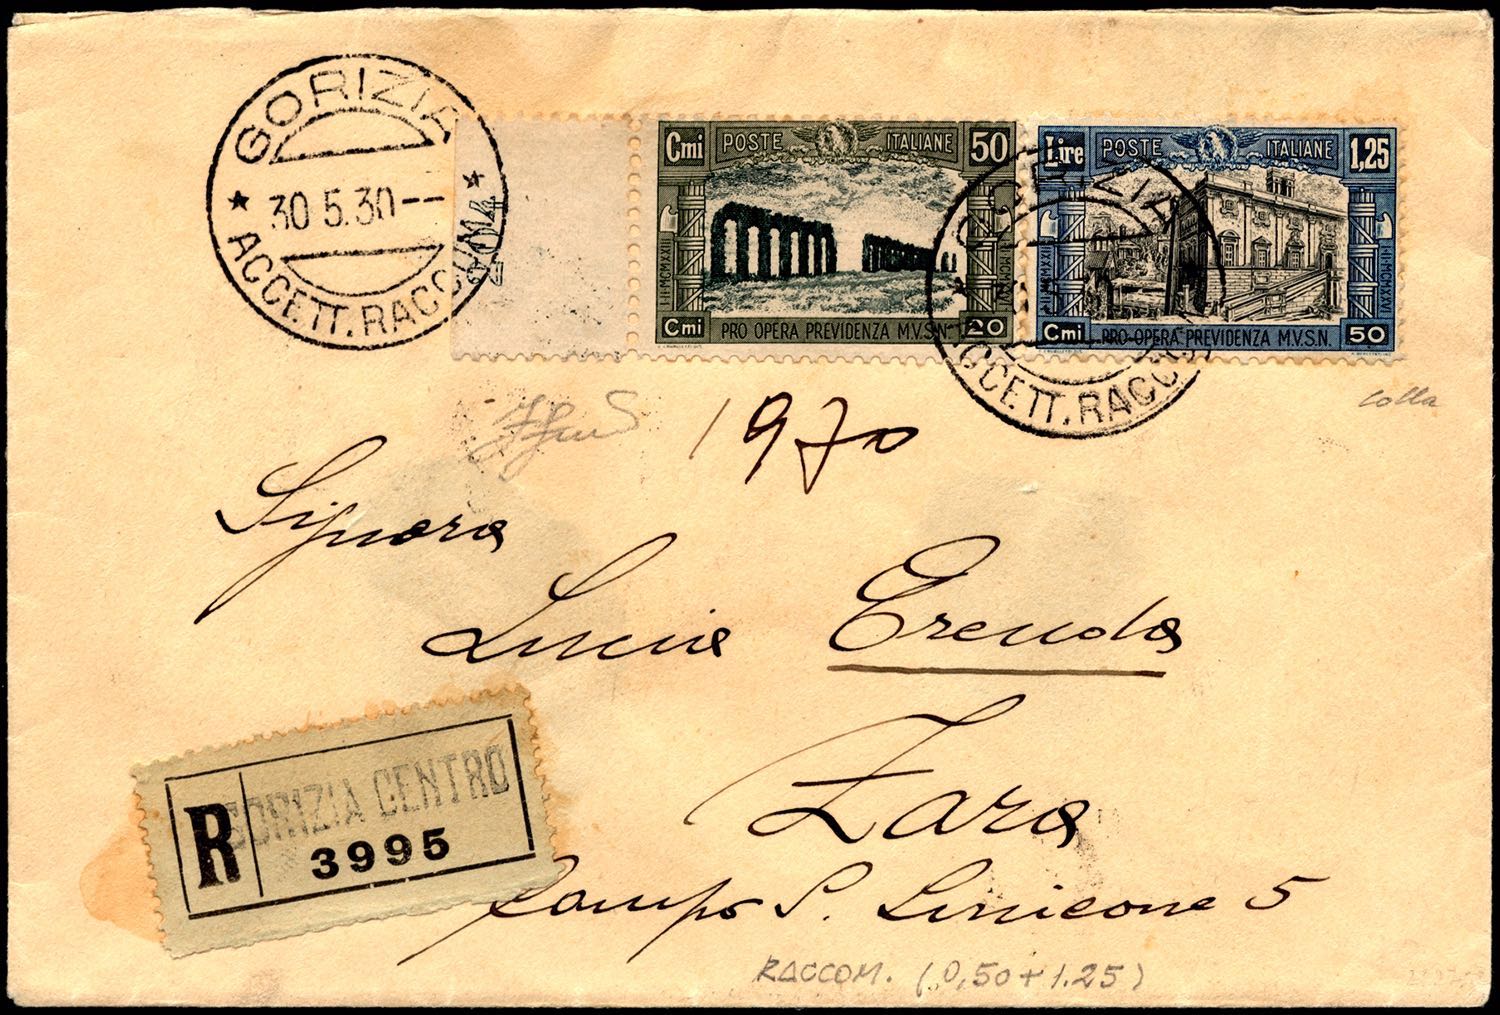 GORIZIA
30 5.30--
★ ACCETT. RACCOM. ★
Cmi POSTE ITALIANE 50
Cmi PRO OPERA PREVIDENZA M.V.S.N. 20
Lire POSTE ITALIANE 1,25
Cmi PRO OPERA PREVIDENZA M.V.S.N. 50
ACCETT. RACCOM.
colla
1970
Signora
Lucia
Zara
R GORIZIA CENTRO
3995
Campo S. 5
RACCOM. (0,50+1.25)